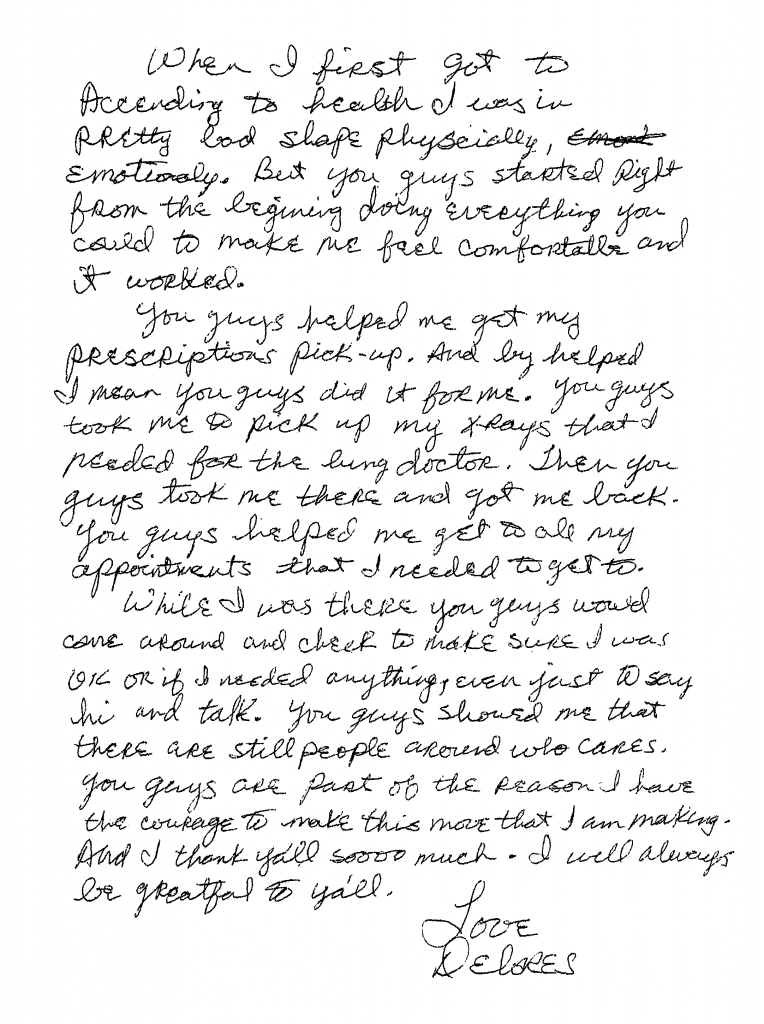 When I first got to
Accending to health I was in
PRETTY bad shape physcially,
Emotionaly. But you guys started Right
from the begining doing everything you
could to make me feel comfortable and
it worked.
You guys helped me get my
PRESCRIPTIONS pick-up. And by helped
I mean you guys did it for me. You guys
took me to pick up my X-Rays that I
needed for the lung doctor. Then you
guys took me there and got me back.
You guys helped me get to all my
appointments that I needed to get to.
While I was there you guys would
come around and check to make sure I was
OK or if I needed anything, even just to say
hi and talk. You guys showed me that
there are still people around who cares.
You guys are part of the reason I have
the courage to make this move that I am making.
And I thank yáll soooo much. I will always
be greatful to yáll.
Love
Delores